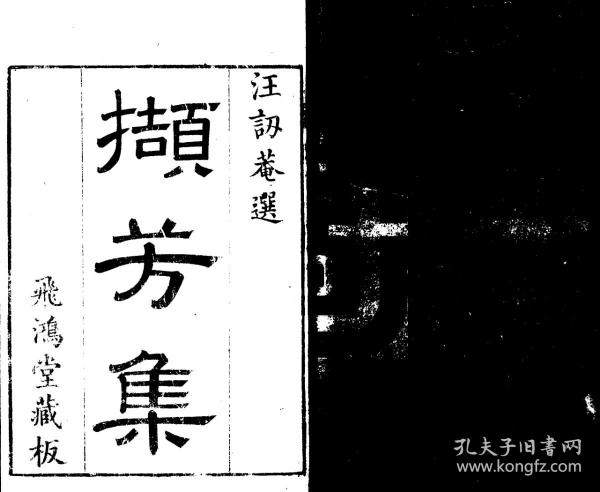 汪訒菴選
擷芳集
飛鴻堂藏板
孔夫子旧書网
www.kongfz.com